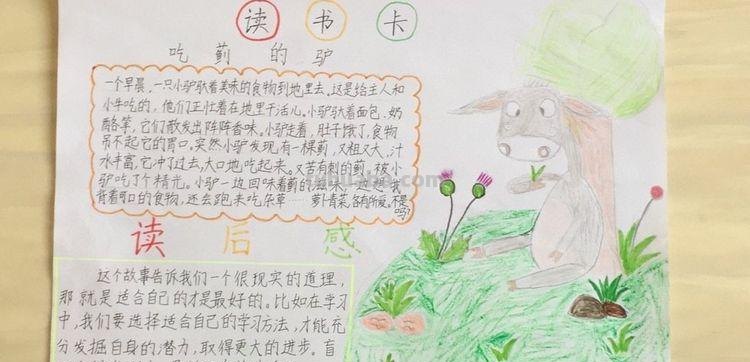 读书卡
吃蓟的驴
一个早晨,一只小驴驮着美味的食物到地里去。这是给主人和
小牛吃的,他们正忙着在地里干活儿。小驴驮着面包、奶
酪等,它们散发出阵阵香味。小驴走着,肚子饿了,食物
吊不起它的胃口,突然小驴发现,有一棵蓟,又粗又大,汁
水丰富,它冲过去,大口地吃起来。又苦有刺的蓟,被小
驴吃了个精光。小驴一边回味着蓟的滋味,一边
背着可口的食物,还去跑来吃杂草……萝卜青菜,各有所爱。不是
吗?
读后感
这个故事告诉我们一个很现实的道理,
那就是适合自己的才是最好的。比如在学习
中,我们要选择适合自己的学习方法,才能充
分发掘自身的潜力,取得更大的进步。盲